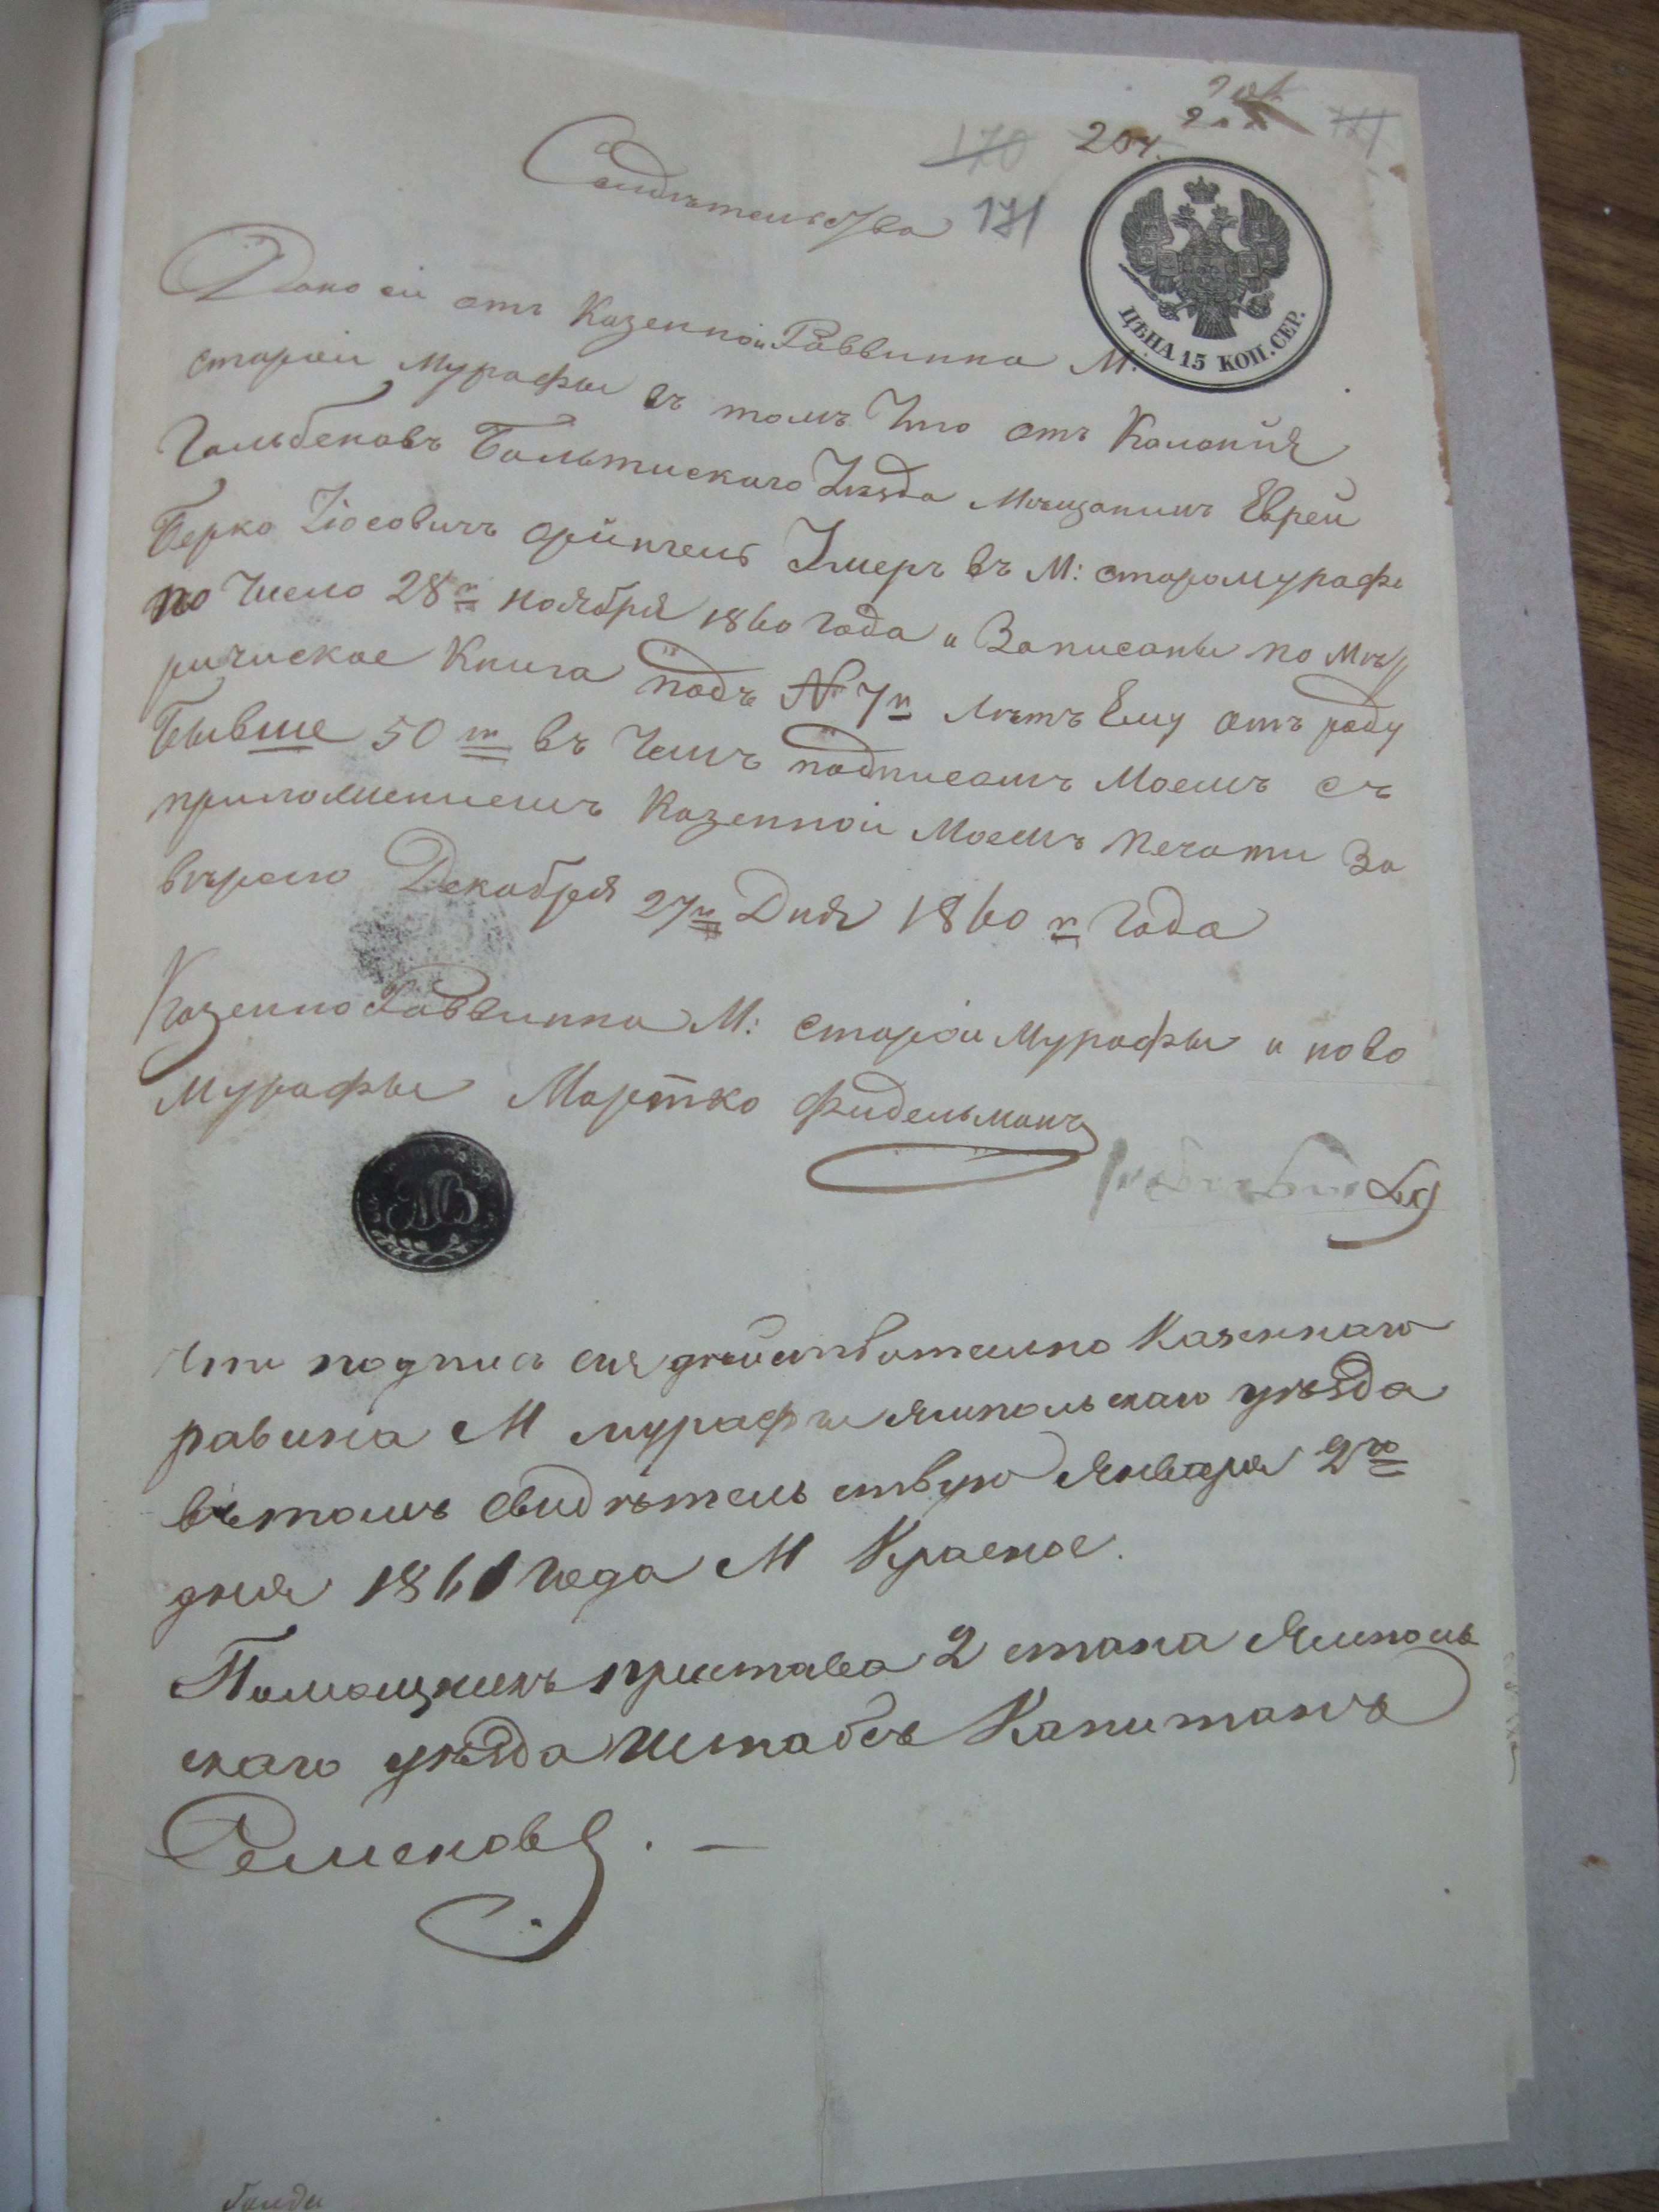 204.
170
171
Свидетельства
ЦѢНА 15 КОП. СЕР.
Дано сіи отъ Казенной Раввинна М:
старои Мурафы въ томъ что отъ Колонія
Гольбековъ Бальтискаго Уезда Мещанинъ Еврей
Берко Іосовичъ Умеръ въ М: старомурафе
по Число 28го ноября 1860 года и Записаны по Мет
рическае Книга подъ № 7м летъ Ему отъ роду
Бывше 50 т въ Чемъ подписомъ Моемъ съ
приложениемъ Казенной Моемъ печати За
веряю Декабря 27го Дня 1860 г Года
Казенно Раввинна М: старои Мурафы и ново
Мурафы Мортко Фидельманъ
МВ
Что подпись сия действительно Казеннаго
равина М мурафы Ямпольскаго уезда
въ томъ свидетельствую Января 2го
дня 1861 года М Красное.
Помощникъ пристава 2 стана Ямполь
скаго уезда Штабсъ Капитанъ
Семеновъ. —